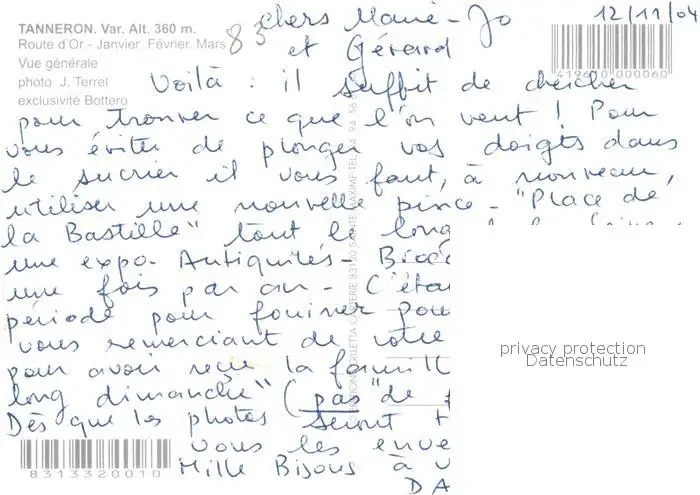 TANNERON. Var. Alt. 360 m.
Route d'Or - Janvier. Février. Mars
Vue générale
photo J. Terret
exclusivité Bottero
83
12/11/04
419610 000060
chers Marie-Jo
et Gérard
Voilà : il suffit de chercher
pour trouver ce que l'on veut ! Pour
vous éviter de plonger vos doigts dans
le sucrier il vous faut, à nouveau,
utiliser une nouvelle pince - "Place de
la Bastille" tout le long
une expo. Antiquités - Broc
une fois par an - C'éta
période pour fouiner pou
vous remerciant de votre
pour avoir reçu la famill
long dimanche" (pas "de f
Dès que les photos seront
vous les enve
Mille Bisous à v
DA
8313320010
privacy protection
Datenschutz